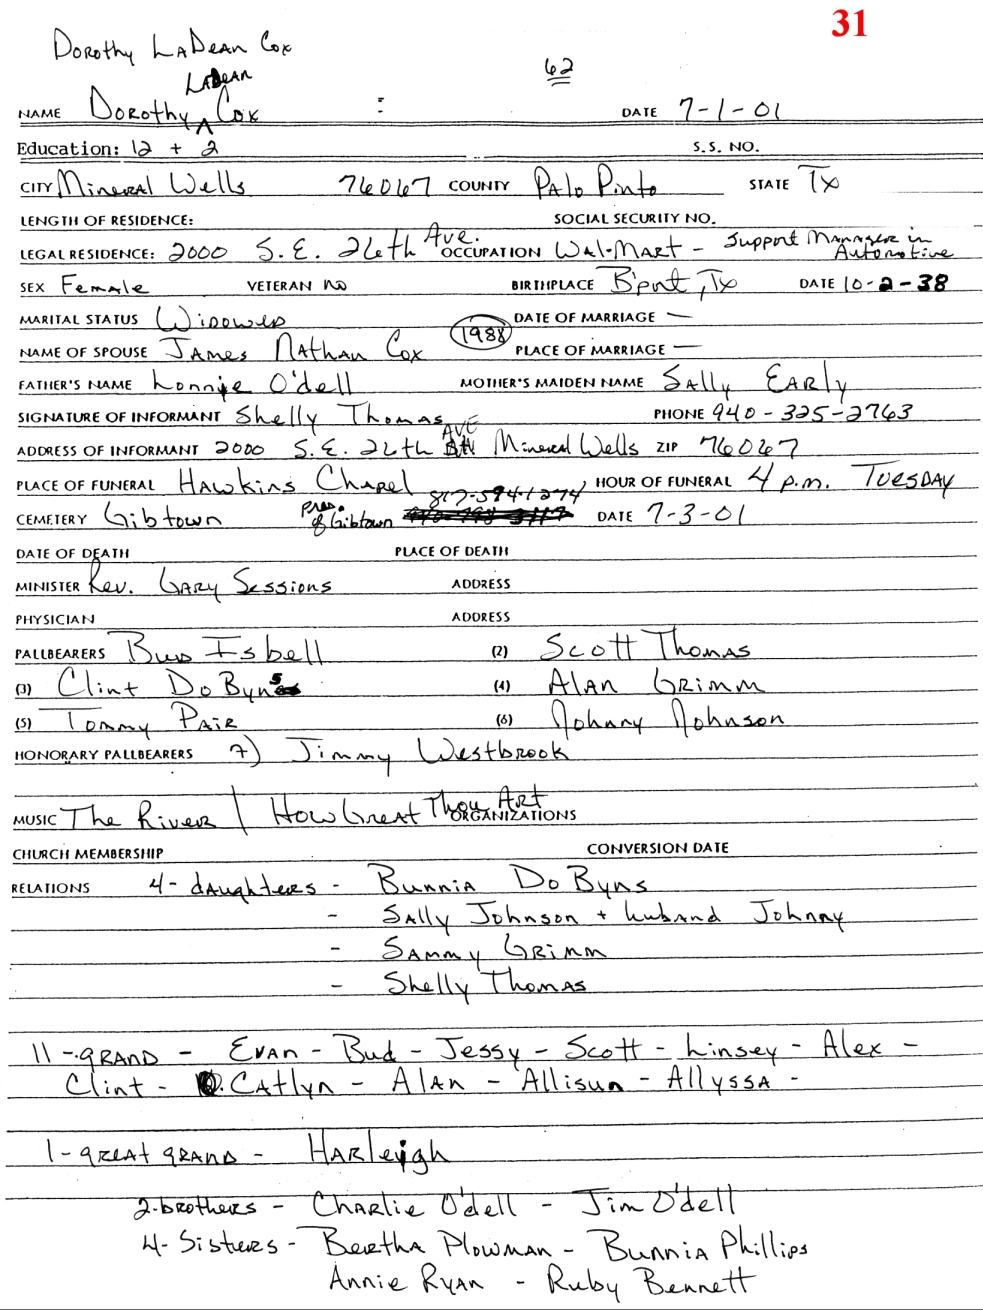 31
Dorothy LaDean Cox
62
LaDean
NAME Dorothy ^ Cox : DATE 7-1-01
Education: 12 + 2 S.S. NO.
CITY Mineral Wells 76067 COUNTY Palo Pinto STATE Tx
LENGTH OF RESIDENCE: SOCIAL SECURITY NO.
LEGAL RESIDENCE: 2000 S.E. 26th Ave. OCCUPATION Wal-Mart - Support Manager in Automotive
SEX Female VETERAN no BIRTHPLACE B'port, Tx DATE 10-2-38
MARITAL STATUS Widowed DATE OF MARRIAGE —
NAME OF SPOUSE James Nathan Cox 1988 PLACE OF MARRIAGE —
FATHER'S NAME Lonnie O'dell MOTHER'S MAIDEN NAME Sally Early
SIGNATURE OF INFORMANT Shelly Thomas PHONE 940-325-2763
ADDRESS OF INFORMANT 2000 S.E. 26th AVE Mineral Wells ZIP 76067
PLACE OF FUNERAL Hawkins Chapel HOUR OF FUNERAL 4 p.m. Tuesday
817-594-1274
CEMETERY Gibtown Pres. of Gibtown DATE 7-3-01
DATE OF DEATH PLACE OF DEATH
MINISTER Rev. Gary Sessions ADDRESS
PHYSICIAN ADDRESS
PALLBEARERS Bud Isbell (2) Scott Thomas
(3) Clint DoByns (4) Alan Grimm
(5) Tommy Pair (6) Johnny Johnson
HONORARY PALLBEARERS 7) Jimmy Westbrook
MUSIC The River / How Great Thou Art ORGANIZATIONS
CHURCH MEMBERSHIP CONVERSION DATE
RELATIONS 4- daughters - Bunnia DoByns
- Sally Johnson + husband Johnny
- Sammy Grimm
- Shelly Thomas
11 - grand - Evan - Bud - Jessy - Scott - Linsey - Alex -
Clint - Catlyn - Alan - Allisun - Allyssa -
1- great grand - Harleigh
2-brothers - Charlie O'dell - Jim O'dell
4- Sisters - Bertha Plowman - Bunnia Phillips
Annie Ryan - Ruby Bennett